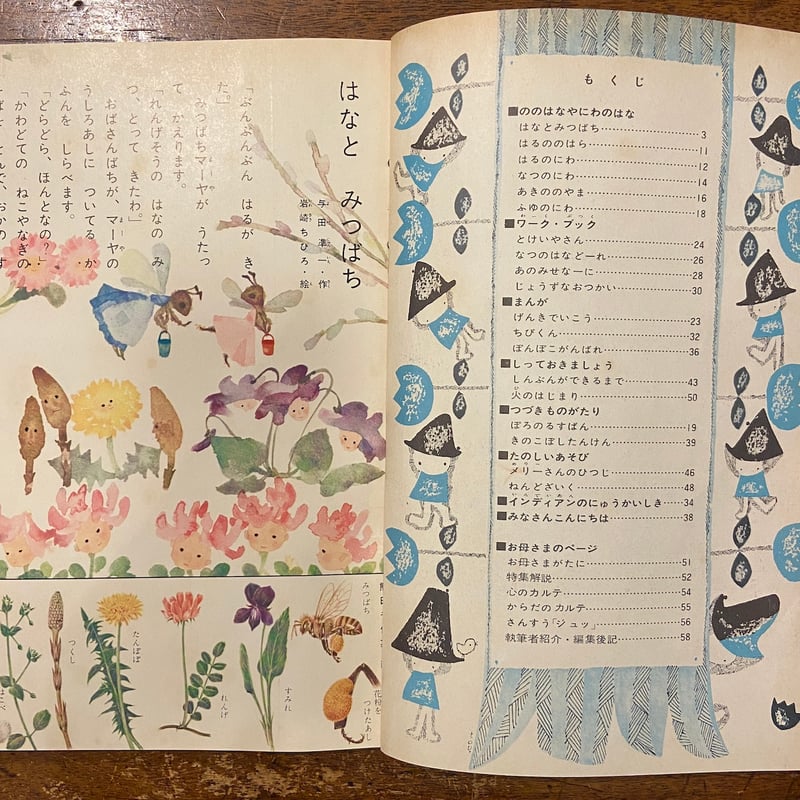 もくじ
■ののはなやにわのはな
はなとみつばち……3
はるののはら……11
はるのにわ……12
なつのにわ……14
あきののやま……16
ふゆのにわ……18
■ワーク・ブック
とけいやさん……24
なつのはなどーれ……26
あのみせなーに……28
じょうずなおつかい……30
■まんが
げんきでいこう……23
ちびくん……32
ぽんぽこがんばれ……36
■しっておきましょう
しんぶんができるまで……43
火のはじまり……50
■つづきものがたり
ぽろのるすばん……19
きのこぼしたんけん……39
■たのしいあそび
メリーさんのひつじ……46
ねんどざいく……48
■インディアンのにゅうかいしき……34
■みなさんこんにちは……38
■お母さまのページ
お母さまがたに……51
特集解説……52
心のカルテ……54
からだのカルテ……55
さんすう「ジュッ」……56
執筆者紹介・編集後記……58
はなと みつばち
与田凖一・作
岩崎ちひろ・絵
「ぶんぶんぶん はるが き
た。」
みつばちマーヤが うたっ
て かえります。
「れんげそうの はなの み
つ、とって きたわ。」
おばさんばちが、マーヤの
うしろあしに ついてる か
ふんを しらべます。
「どらどら、ほんとなの？」
「かわどての ねこやなぎの
みつばち
花粉を
つけたあし
すみれ
れんげ
たんぽぽ
つくし